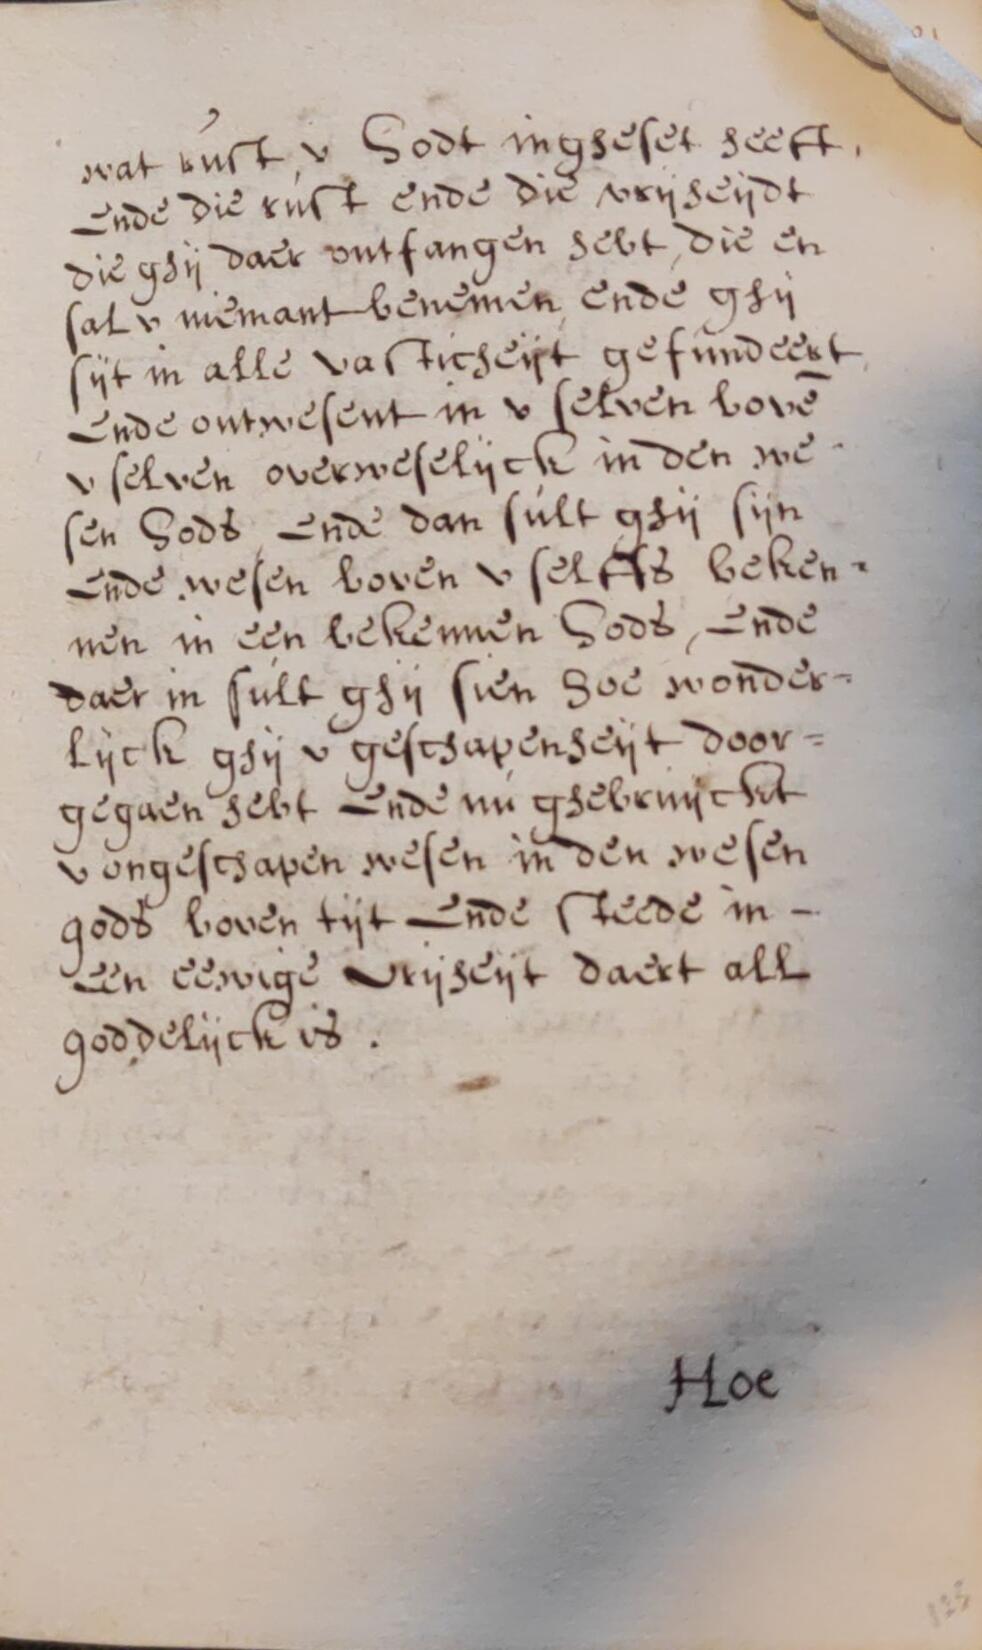 wat rust, v Godt ingheset heeft,
Ende die rust ende die vrijheijdt
die ghij daer ontfangen hebt, die en
sal v niemant benemen, ende ghij
sijt in alle vasticheijt gefundeert,
Ende ontwesent in v selven bovē
v selven overweselijck in den we-
sen Gods, Ende dan sult ghij sijn
Ende wesen boven v selffs beken-
nen in een bekennen Gods, Ende
daer in sult ghij sien hoe wonder-
lijck ghij v geschapenheijt door-
gegaen hebt Ende nu ghebruijckt
v ongeschapen wesen in den wesen
gods boven tijt Ende steede in-
Een eewige vrijheijt daert all
goddelijck is.
Hoe